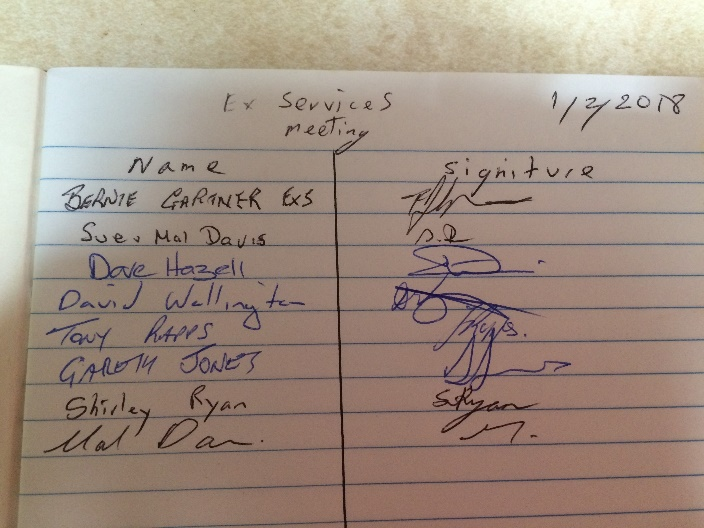 Ex Services 1/2/2018
meeting
Name signiture
BERNIE GARTNER EXS
Sue & Mal Davis S.D
Dave Hazell
David Wallington
TONY RAPPS
GARETH JONES
Shirley Ryan S.Ryan
Mal